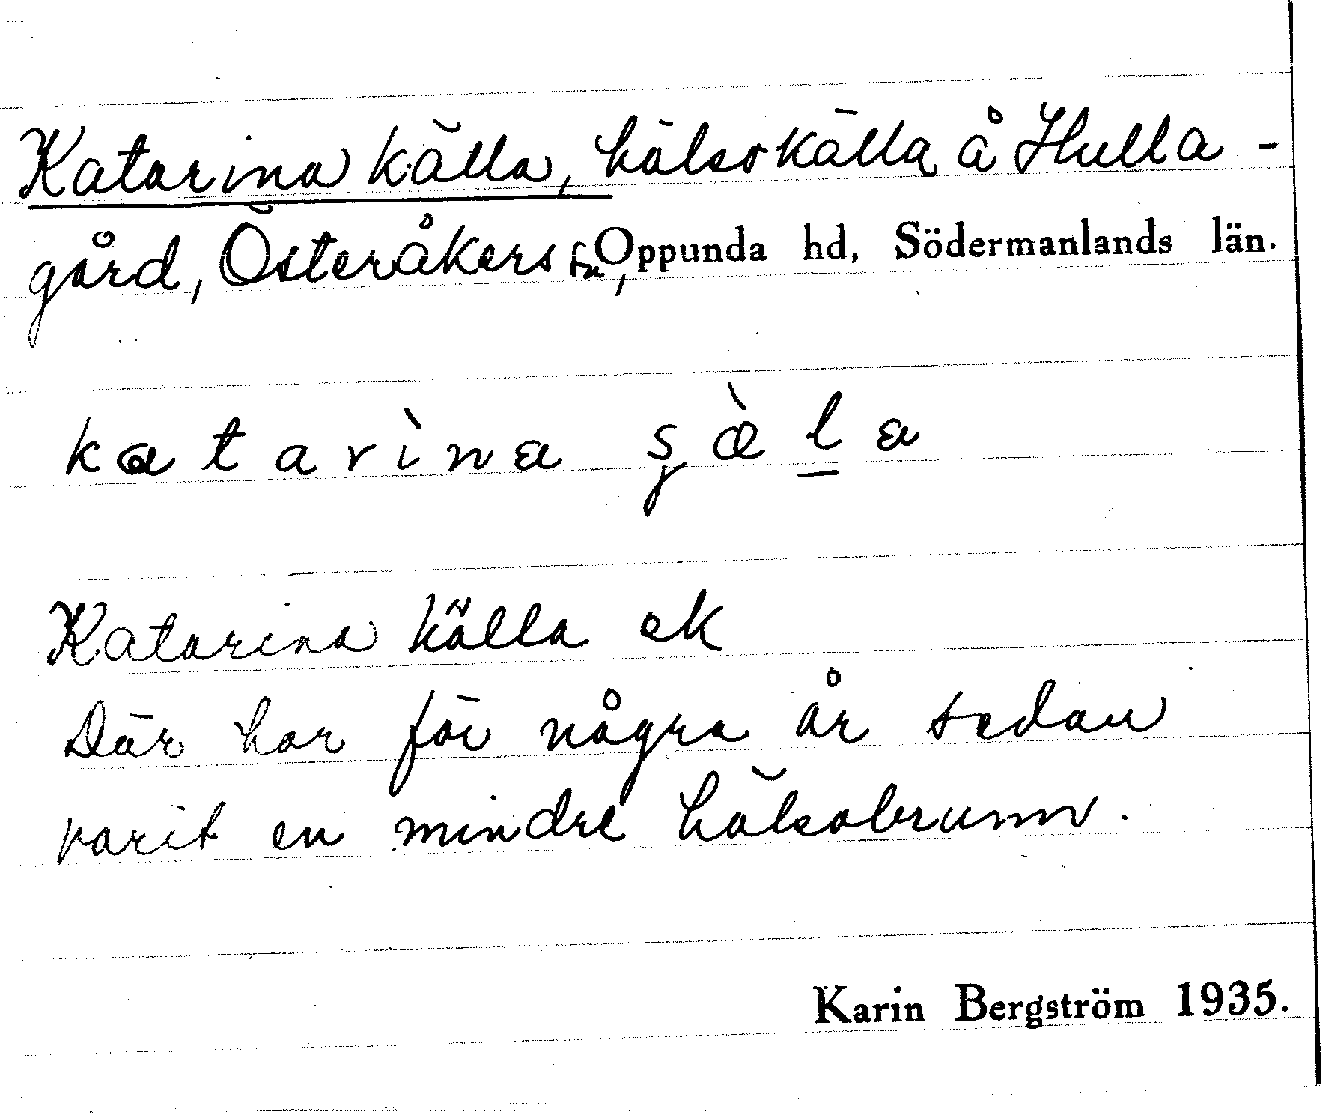 Katarina källa, hälsokälla å Hulla-
gård, Österåkers sn, Oppunda hd, Södermanlands län.
katarìna şæ̀l̲a
Katarina källa ek
Där har för några år sedan
varit en mindre hälsobrunn.
Karin Bergström 1935.